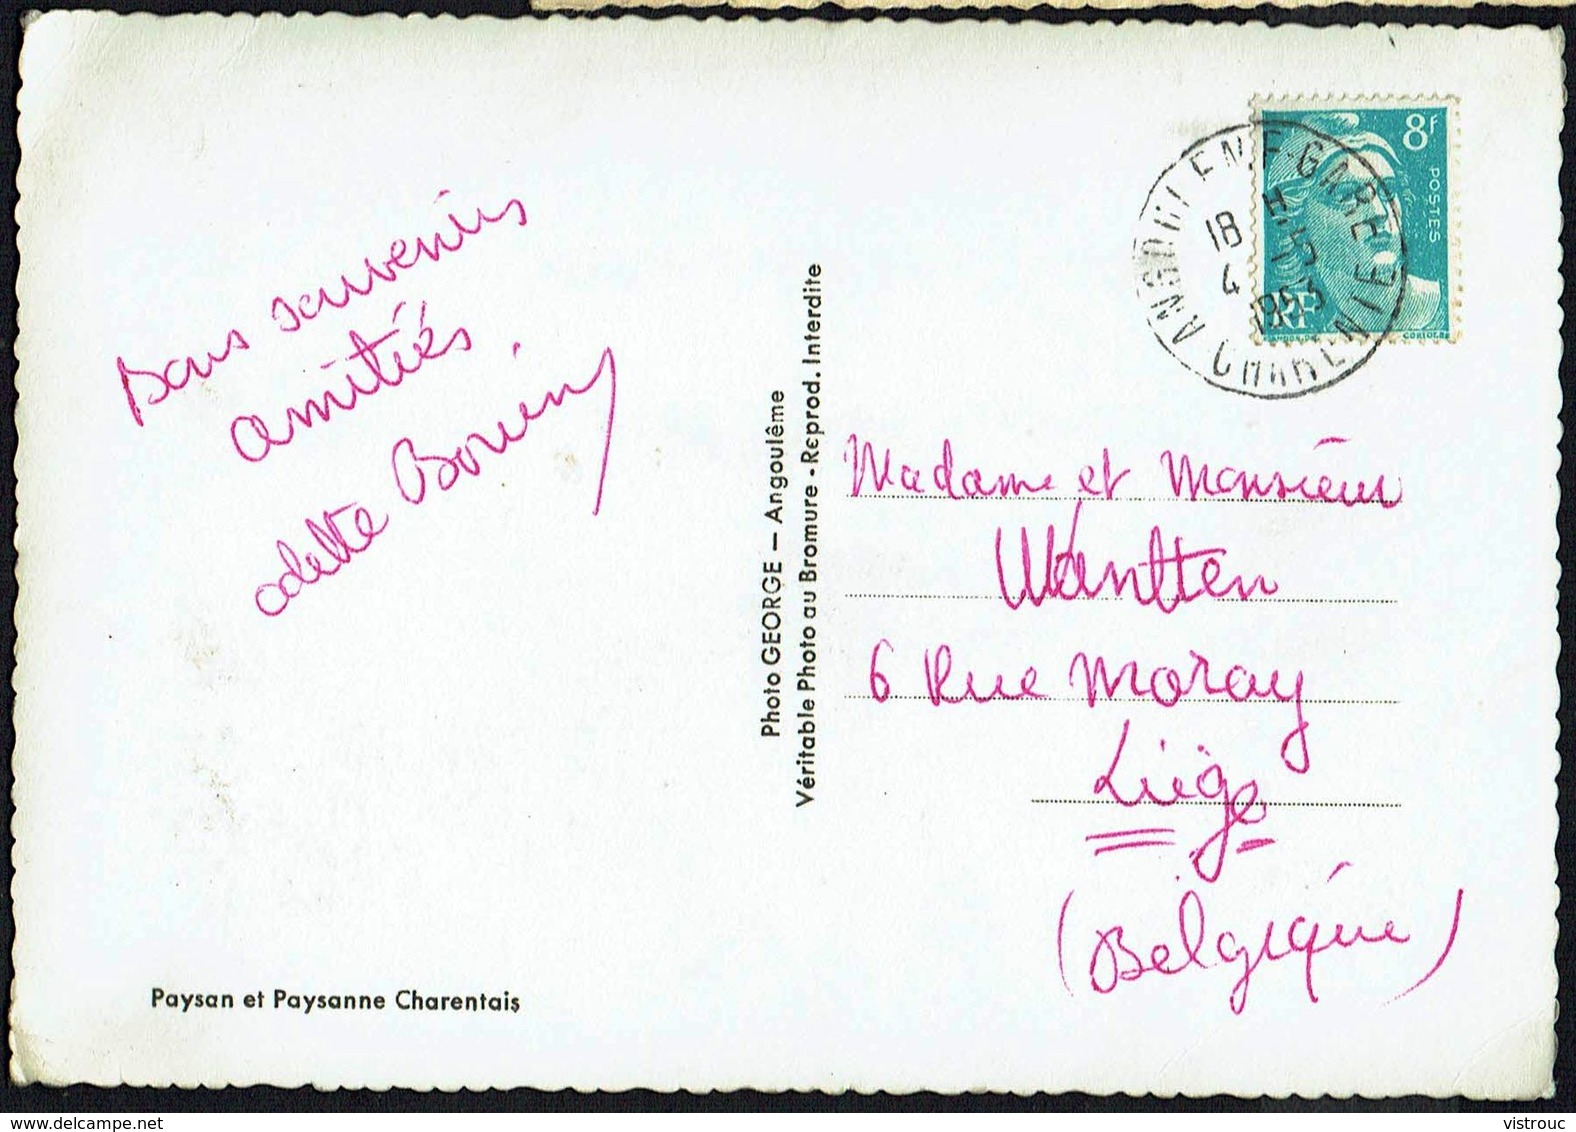 Bons souvenirs
amitiés
odette Bouin
Paysan et Paysanne Charentais
Photo GEORGE — Angoulême
Véritable Photo au Bromure - Reprod. Interdite
8F
POSTES
RF
ANGOULEME-GARE
18 H
4 - 5
1953
CHARENTE
Madame et Monsieur
Wantten
6 Rue Moray
Liège
(Belgique)
vistrouc